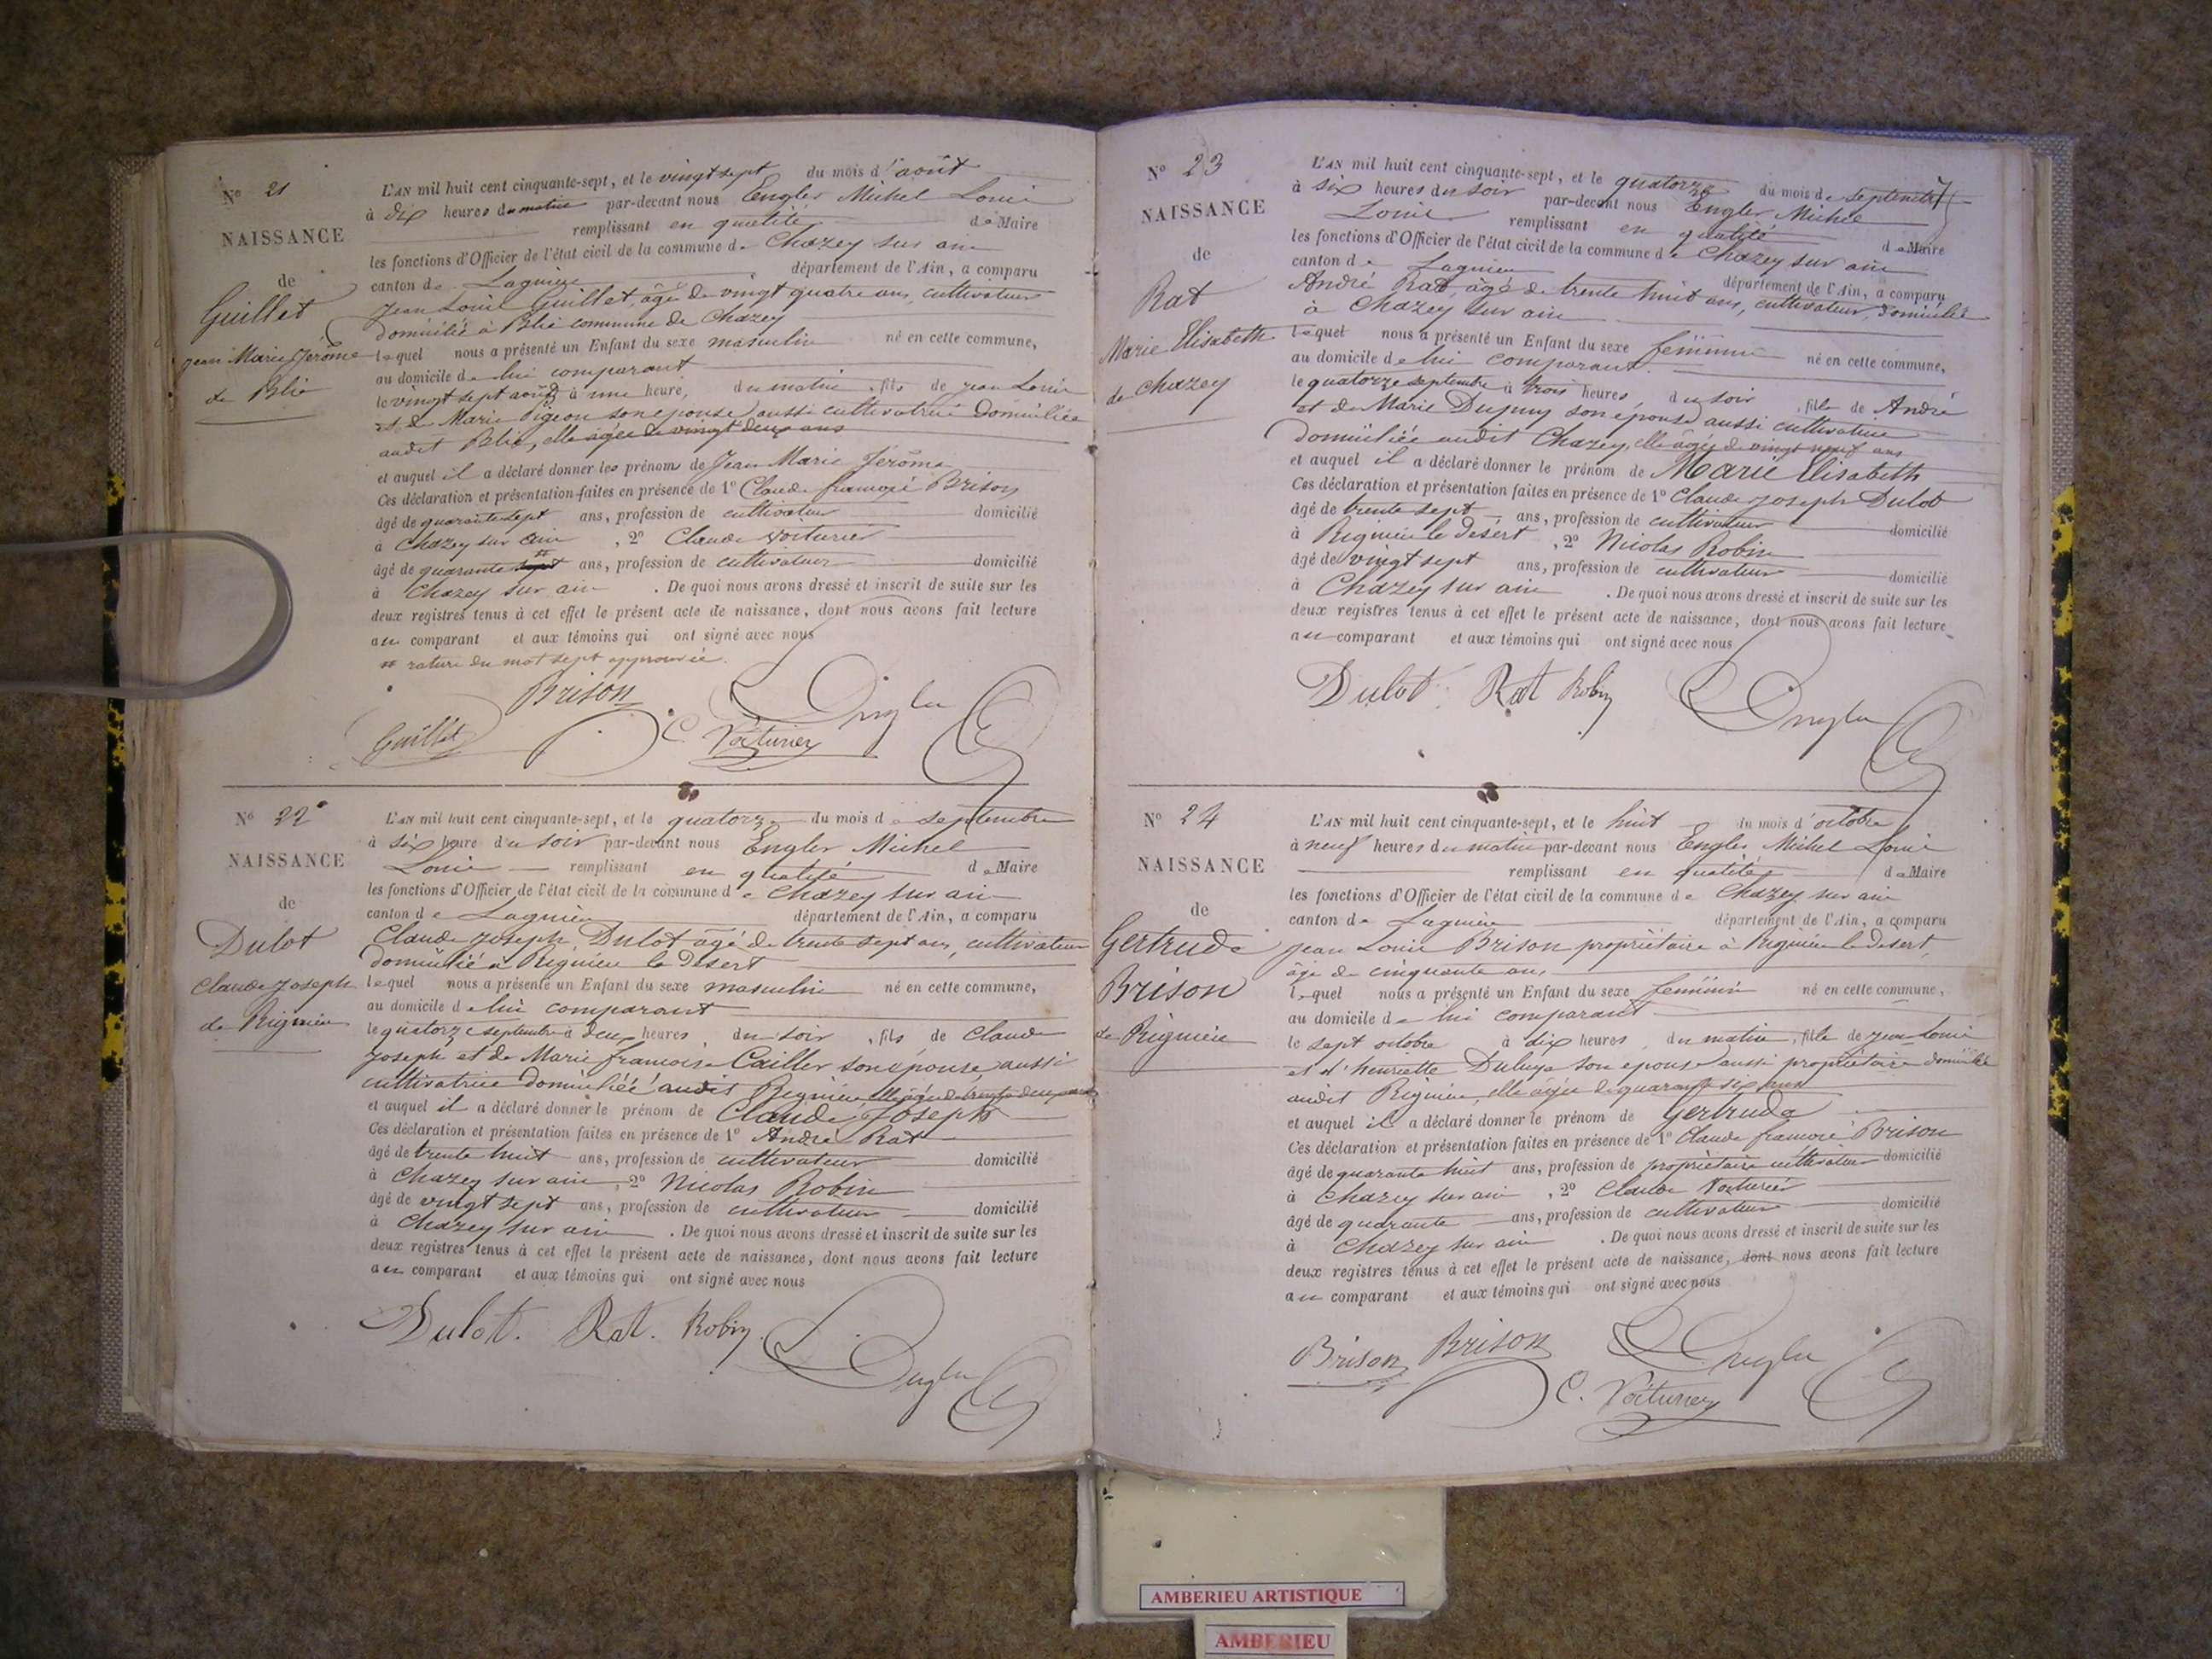 N° 21
NAISSANCE
de
Guillet
Jean Marie Jérôme
de Blié
L'AN mil huit cent cinquante-sept, et le vingt sept du mois d'août
à dix heures du matin par-devant nous Engler Michel Louis
remplissant en qualité de Maire
les fonctions d'Officier de l'état civil de la commune de Chazey sur ain
canton de Lagnieu département de l'Ain, a comparu
Jean Louis Guillet, âgé de vingt quatre ans, cultivateur
domicilié à Blié commune de Chazey
lequel nous a présenté un Enfant du sexe masculin né en cette commune,
au domicile de lui comparant
le vingt sept août à une heure, du matin, fils de Jean Louis
et de Marie Pigeon son épouse aussi cultivatrice domiciliée
audit Blié, elle âgée de vingt deux ans
et auquel il a déclaré donner les prénoms de Jean Marie Jérôme
Ces déclaration et présentation faites en présence de 1° Claude françois Brison
âgé de quarante sept ans, profession de cultivateur domicilié
à Chazey sur ain, 2° Claude Voiturier
âgé de quarante sept ans, profession de cultivateur domicilié
à Chazey sur ain. De quoi nous avons dressé et inscrit de suite sur les
deux registres tenus à cet effet le présent acte de naissance, dont nous avons fait lecture
au comparant et aux témoins qui ont signé avec nous
rature du mot sept approuvée.
Brison Engler
Guillet C. Voiturier
N° 22
NAISSANCE
de
Dulot
Claude Joseph
de Rignieu
L'AN mil huit cent cinquante-sept, et le quatorze du mois de septembre
à six heure du soir par-devant nous Engler Michel
Louis remplissant en qualité de Maire
les fonctions d'Officier de l'état civil de la commune de Chazey sur ain
canton de Lagnieu département de l'Ain, a comparu
Claude Joseph Dulot âgé de trente sept ans, cultivateur
domicilié à Rignieu le Désert
lequel nous a présenté un Enfant du sexe masculin né en cette commune,
au domicile de lui comparant
le quatorze septembre à deux heures du soir, fils de Claude
Joseph et de Marie françoise Cailler son épouse aussi
cultivatrice domiciliée audit Rignieu, elle âgée de trente deux ans
et auquel il a déclaré donner le prénom de Claude Joseph
Ces déclaration et présentation faites en présence de 1° André Rat
âgé de trente huit ans, profession de cultivateur domicilié
à Chazey sur ain, 2° Nicolas Robin
âgé de vingt sept ans, profession de cultivateur domicilié
à Chazey sur ain. De quoi nous avons dressé et inscrit de suite sur les
deux registres tenus à cet effet le présent acte de naissance, dont nous avons fait lecture
au comparant et aux témoins qui ont signé avec nous
Dulot. Rat. Robin. Engler
N° 23
NAISSANCE
de
Rat
Marie Elisabeth
de Chazey
L'AN mil huit cent cinquante-sept, et le quatorze du mois de septembre
à six heures du soir par-devant nous Engler Michel
Louis remplissant en qualité de Maire
les fonctions d'Officier de l'état civil de la commune de Chazey sur ain
canton de Lagnieu département de l'Ain, a comparu
André Rat, âgé de trente huit ans, cultivateur, domicilié
à Chazey sur ain
lequel nous a présenté un Enfant du sexe féminin né en cette commune,
au domicile de lui comparant.
le quatorze septembre à trois heures, du soir, fille de André
et de Marie Dupuy son épouse aussi cultivatrice
domiciliée audit Chazey, elle âgée de vingt neuf ans
et auquel il a déclaré donner le prénom de Marie Elisabeth
Ces déclaration et présentation faites en présence de 1° Claude Joseph Dulot
âgé de trente sept ans, profession de cultivateur domicilié
à Rignieu le Désert, 2° Nicolas Robin
âgé de vingt sept ans, profession de cultivateur domicilié
à Chazey sur ain. De quoi nous avons dressé et inscrit de suite sur les
deux registres tenus à cet effet le présent acte de naissance, dont nous avons fait lecture
au comparant et aux témoins qui ont signé avec nous
Dulot Rat Robin Engler
N° 24
NAISSANCE
de
Gertrude
Brison
de Rignieu
L'AN mil huit cent cinquante-sept, et le huit du mois d'octobre
à neuf heures du matin par-devant nous Engler Michel Louis
remplissant en qualité de Maire
les fonctions d'Officier de l'état civil de la commune de Chazey sur ain
canton de Lagnieu département de l'Ain, a comparu
Jean Louis Brison propriétaire à Rignieu le désert,
âgé de cinquante ans,
lequel nous a présenté un Enfant du sexe féminin né en cette commune,
au domicile de lui comparant
le sept octobre à dix heures, du matin, fille de Jean Louis
et d'henriette Duluya son épouse aussi propriétaire domiciliée
audit Rignieu, elle âgée de quarante six ans
et auquel il a déclaré donner le prénom de Gertrude
Ces déclaration et présentation faites en présence de 1° Claude françois Brison
âgé de quarante huit ans, profession de propriétaire cultivateur domicilié
à Chazey sur ain, 2° Claude Voiturier
âgé de quarante ans, profession de cultivateur domicilié
à Chazey sur ain. De quoi nous avons dressé et inscrit de suite sur les
deux registres tenus à cet effet le présent acte de naissance, dont nous avons fait lecture
au comparant et aux témoins qui ont signé avec nous
Brison Brison Engler
C. Voiturier
AMBERIEU ARTISTIQUE
AMBERIEU